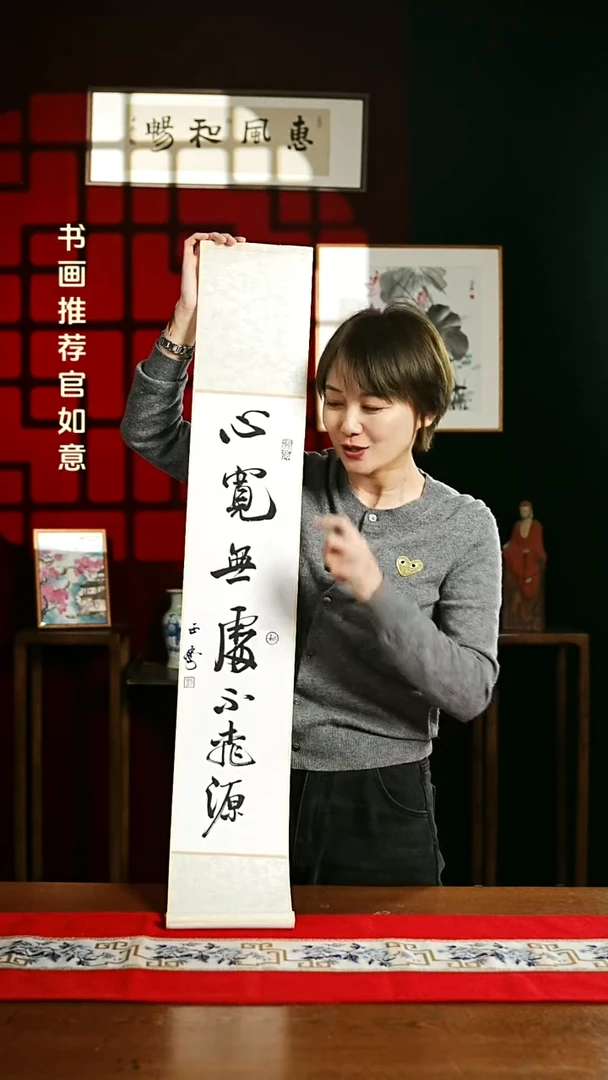 惠風和暢
书画推荐官如意
心寬無處不桃源